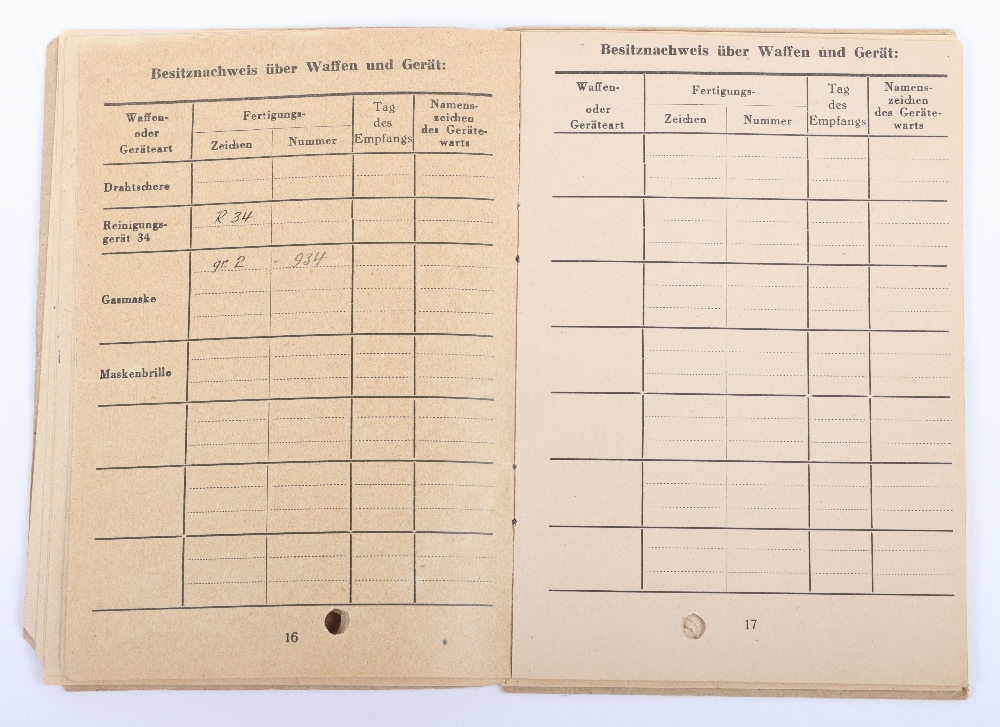 Besitznachweis über Waffen und Gerät:
Waffen-
oder
Geräteart
Fertigungs-
Zeichen
Nummer
Tag
des
Empfangs
Namens-
zeichen
des Geräte-
warts
Drahtschere
Reinigungs-
gerät 34
R 34
Gasmaske
gr. 2
934
Maskenbrille
16
Besitznachweis über Waffen und Gerät:
Waffen-
oder
Geräteart
Fertigungs-
Zeichen
Nummer
Tag
des
Empfangs
Namens-
zeichen
des Geräte-
warts
17